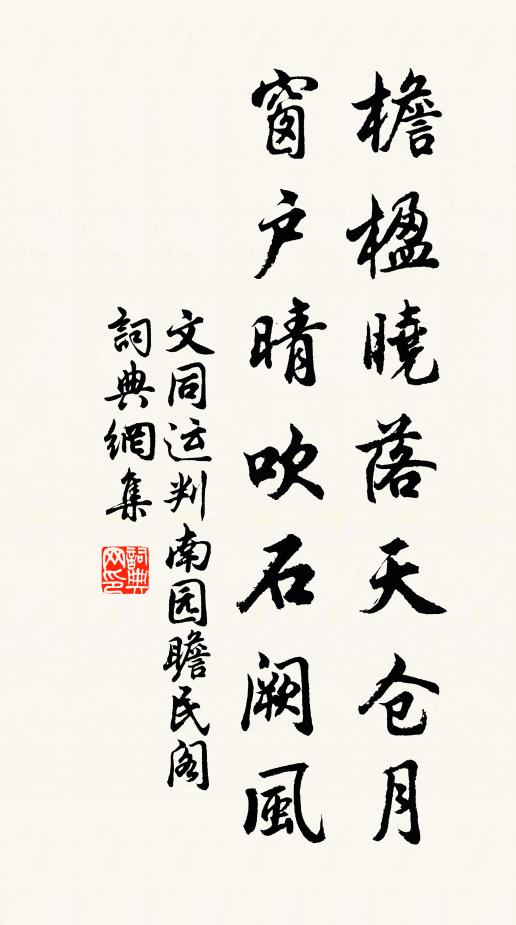 檐楹曉落天仓月
窗户晴吹石阙風
文同运判南园瞻民阁
詞典網集
詞典网印